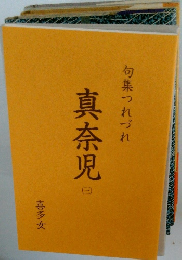 句集つれづれ
真奈児
㈡
喜多女